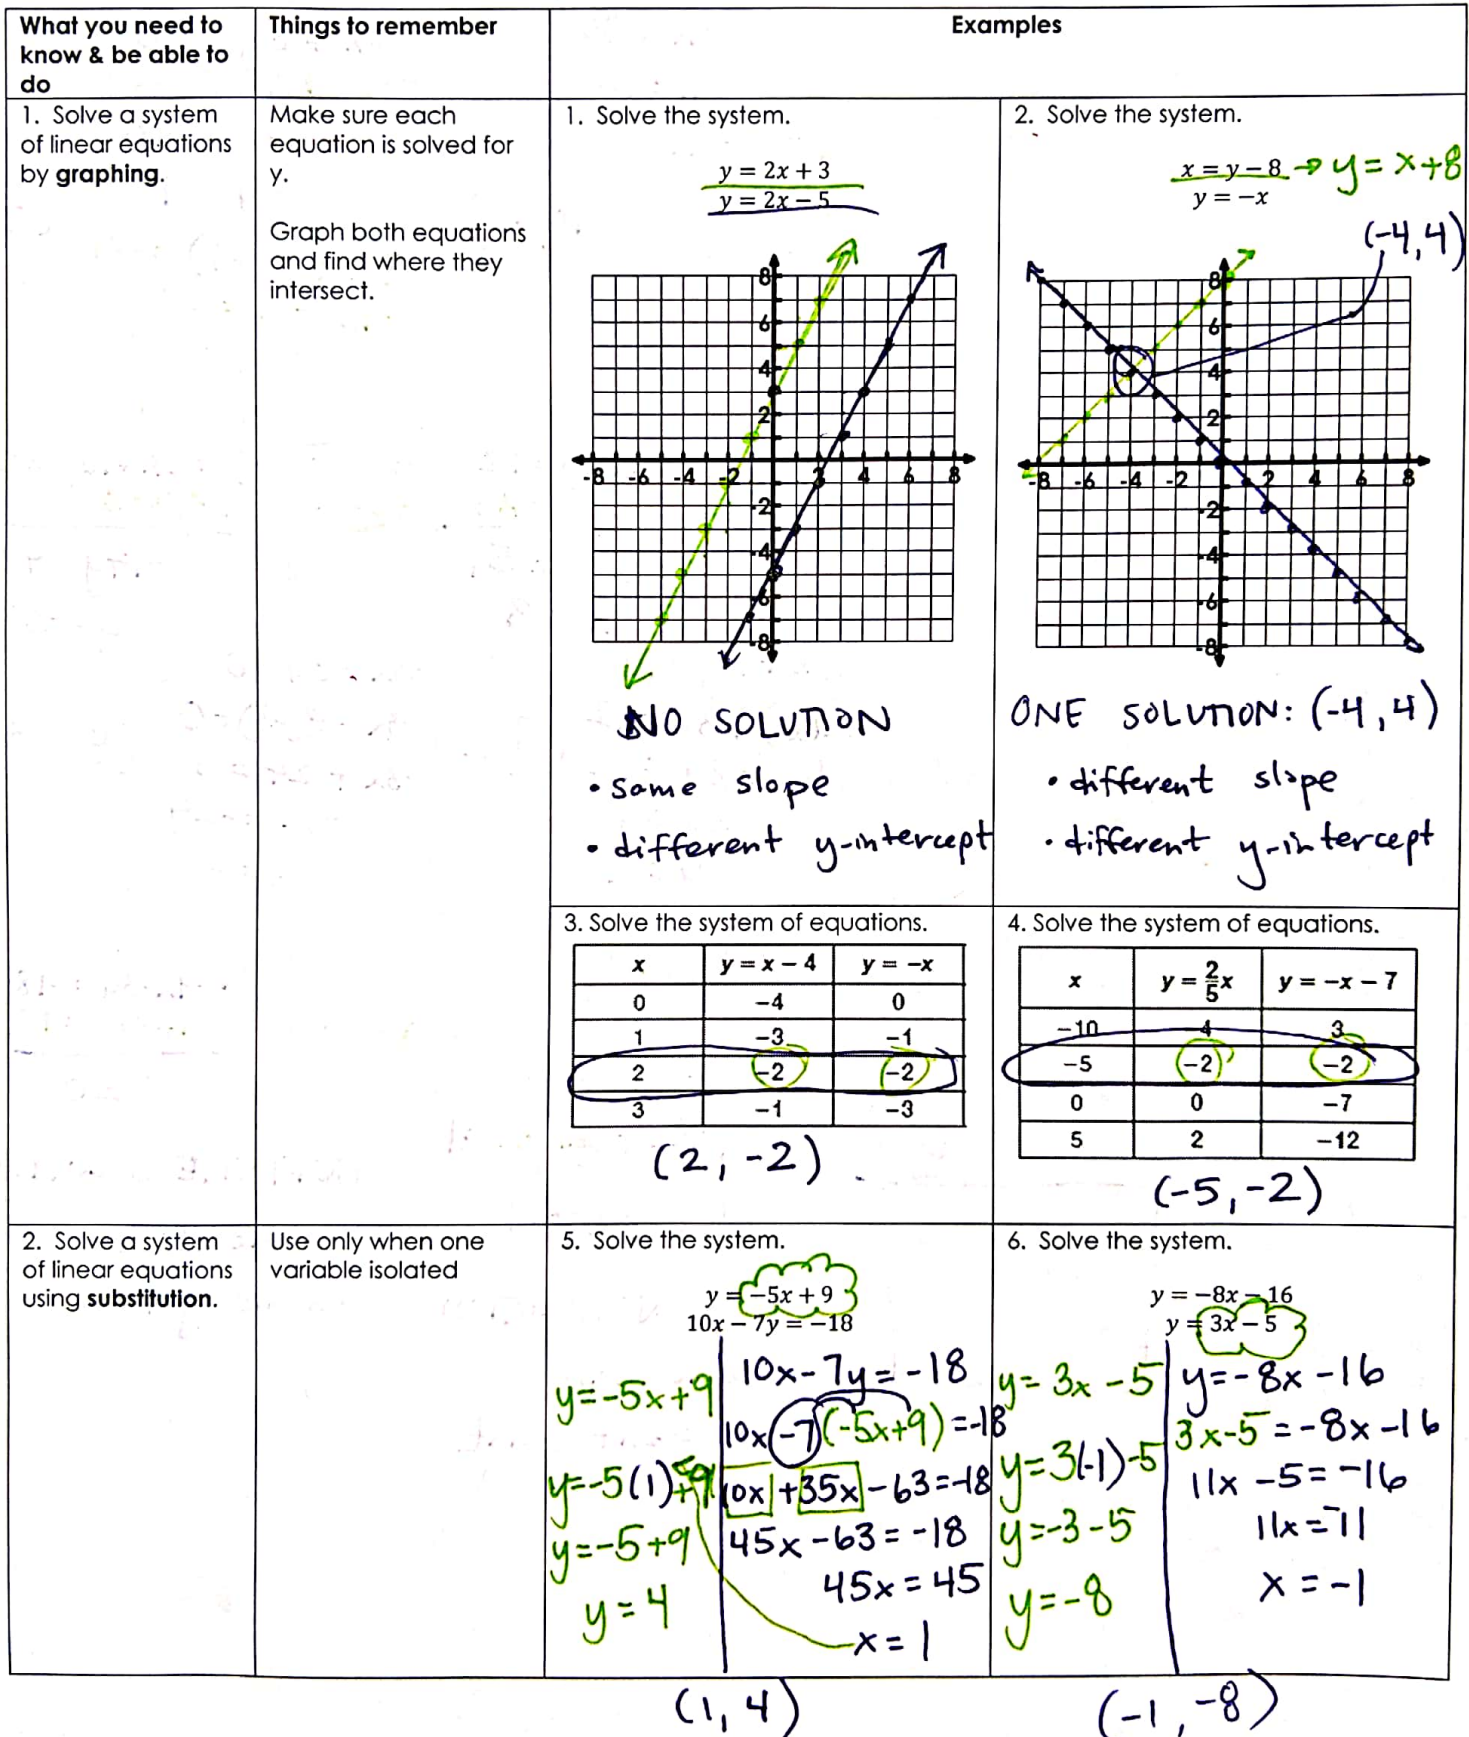 What you need to
know & be able to
do
Things to remember
Examples
1. Solve a system
of linear equations
by graphing.
Make sure each
equation is solved for
y.
Graph both equations
and find where they
intersect.
1. Solve the system.
y = 2x + 3
y = 2x − 5
8
6
4
2
-8 -6 -4 -2 2 4 6 8
-2
-4
-6
-8
NO SOLUTION
• same slope
• different y-intercept
2. Solve the system.
x = y − 8 → y = x+8
y = −x
(-4,4)
8
6
4
2
-8 -6 -4 -2 2 4 6 8
-2
-4
-6
-8
ONE SOLUTION: (-4,4)
• different slope
• different y-intercept
3. Solve the system of equations.
x y = x − 4 y = −x
0 −4 0
1 −3 −1
2 −2 −2
3 −1 −3
(2, -2)
4. Solve the system of equations.
x y = 2/5 x y = −x − 7
−10 4 3
−5 −2 −2
0 0 −7
5 2 −12
(-5, -2)
2. Solve a system
of linear equations
using substitution.
Use only when one
variable isolated
5. Solve the system.
y = −5x + 9
10x − 7y = −18
y=-5x+9
y=-5(1)+9
y=-5+9
y=4
10x-7y=-18
10x-7(-5x+9)=-18
10x+35x-63=-18
45x-63=-18
45x=45
x=1
(1, 4)
6. Solve the system.
y = −8x − 16
y = 3x − 5
y=3x-5
y=3(-1)-5
y=-3-5
y=-8
y=-8x-16
3x-5=-8x-16
11x-5=-16
11x=-11
x=-1
(-1, -8)